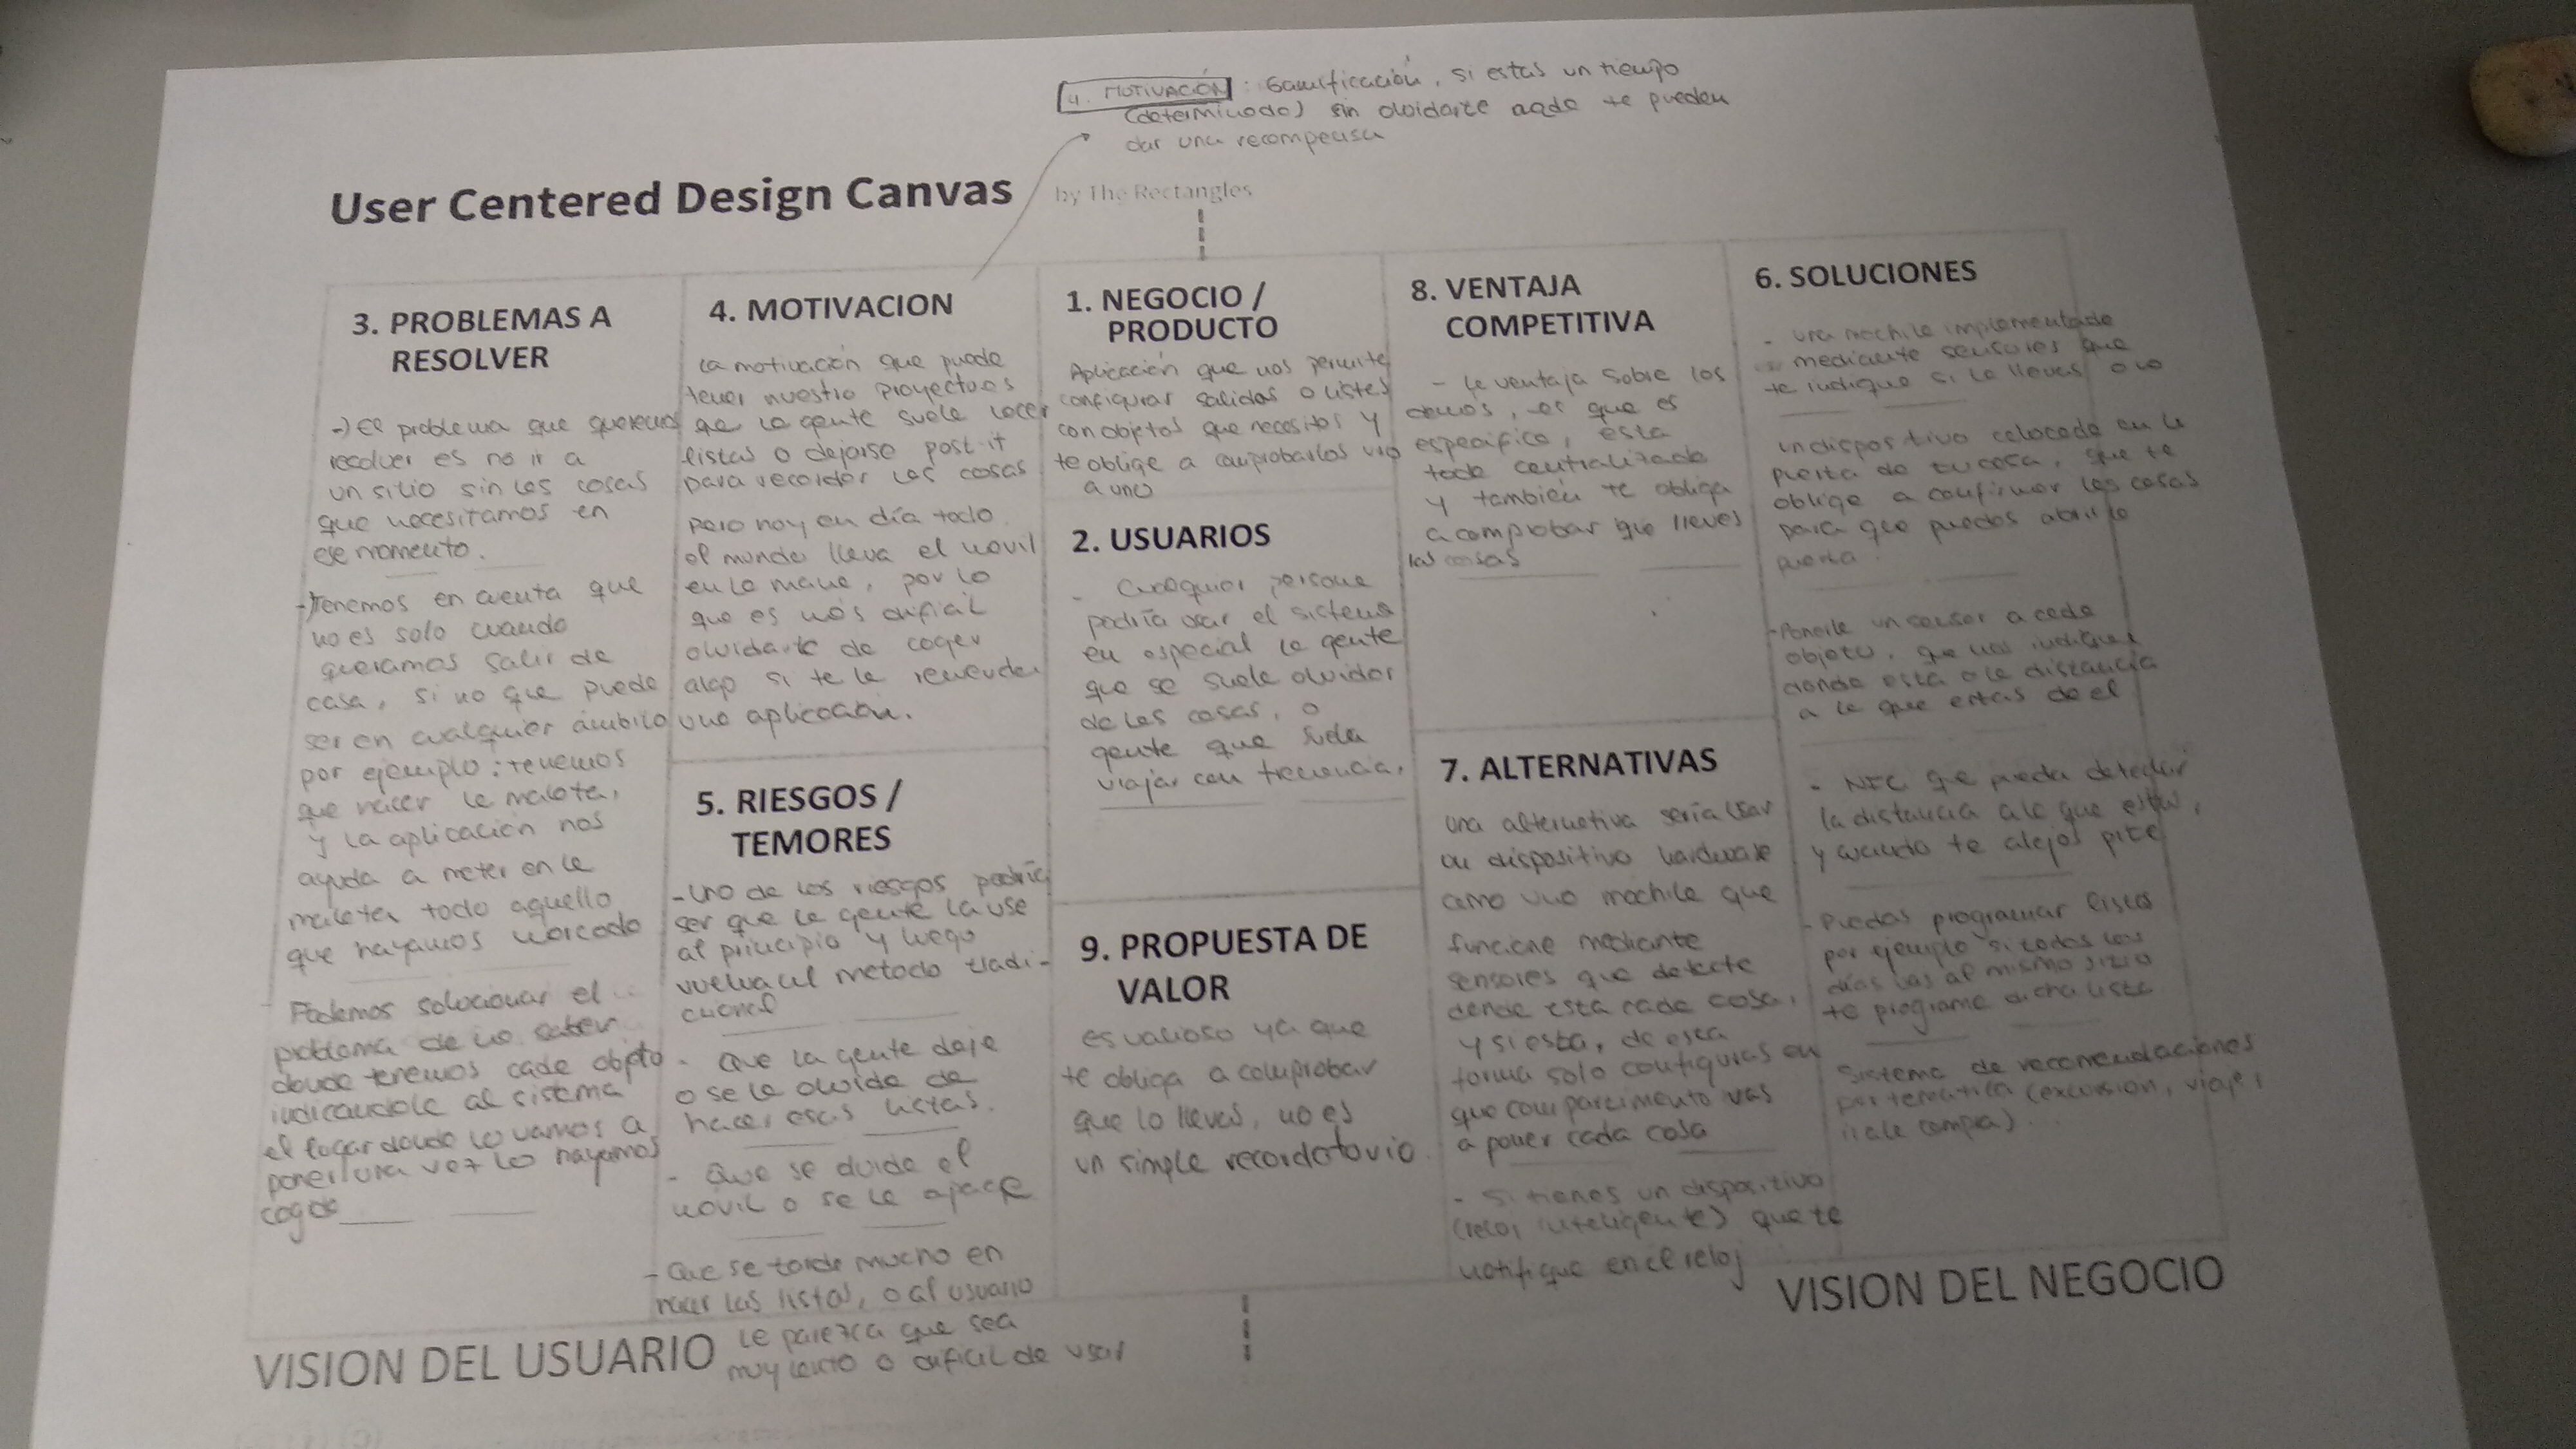 4. MOTIVACIÓN : Gamificación, si estas un tiempo
(determinado) sin olvidarte nada te pueden
dar una recompensa
User Centered Design Canvas
by The Rectangles
3. PROBLEMAS A
RESOLVER
-> El problema que queremos
resolver es no ir a
un sitio sin las cosas
que necesitamos en
ese momento.
-> Tenemos en cuenta que
no es solo cuando
queramos salir de
casa, si no que puede
ser en cualquier ámbito
por ejemplo: tenemos
que hacer la maleta,
y la aplicación nos
ayuda a meter en la
maleta todo aquello
que hayamos marcado
- Podemos solucionar el
problema de no saber
donde tenemos cada objeto
indicandole al sistema
el lugar donde lo vamos a
poner una vez lo hayamos
cogido
4. MOTIVACION
La motivación que puede
tener nuestro proyecto es
que la gente suele hacer
listas o dejarse post-it
para recordar las cosas
pero hoy en día todo
el mundo lleva el movil
en la mano, por lo
que es más dificil
olvidarte de coger
algo si te lo recuerda
una aplicación.
5. RIESGOS /
TEMORES
- Uno de los riesgos podría
ser que la gente la use
al principio y luego
vuelva al metodo tradi-
cional
- Que la gente deje
o se le olvide de
hacer esas listas.
- Que se olvide el
móvil o se le apague
- Que se tarde mucho en
hacer las listas, o al usuario
le parezca que sea
muy lento o dificil de usar
VISION DEL USUARIO
1. NEGOCIO /
PRODUCTO
Aplicación que nos permite
configurar salidas o listas
con objetos que necesitas y
te oblige a comprobarlos uno
a uno
2. USUARIOS
- Cualquier persona
podría usar el sistema
en especial la gente
que se suele olvidar
de las cosas, o
gente que suela
viajar con frecuencia.
9. PROPUESTA DE
VALOR
es valioso ya que
te obliga a comprobar
que lo lleves, no es
un simple recordatorio.
8. VENTAJA
COMPETITIVA
- La ventaja sobre los
demas, es que es
especifico, esta
todo centralizado
y también te obliga
a comprobar que lleves
las cosas
7. ALTERNATIVAS
Una alternativa sería usar
un dispositivo hardware
como una mochila que
funcione mediante
sensores que detecte
donde esta cada cosa,
y si esta, de esta
forma solo configuras en
que compartimento vas
a poner cada cosa
- Si tienes un dispositivo
(reloj inteligente) que te
notifique en el reloj
6. SOLUCIONES
- una mochila implementada
mediante sensores que
te indique si lo llevas o no
un dispositivo colocado en la
puerta de tu casa, que te
oblige a confirmar las cosas
para que puedas abrir la
puerta
- Ponerle un sensor a cada
objeto, que nos indique
donde esta o la distancia
a la que estas de el
- NFC que pueda detectar
la distancia a la que estas,
y cuando te alejas pite
- Puedas programar listas
por ejemplo si todos los
días vas al mismo sitio
te programe dicha lista
Sistema de recomendaciones
por tematica (excursion, viaje,
ir a la compra)...
VISION DEL NEGOCIO